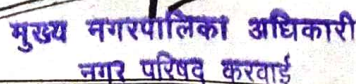 मुख्य नगरपालिका अधिकारी
नगर परिषद करवाई